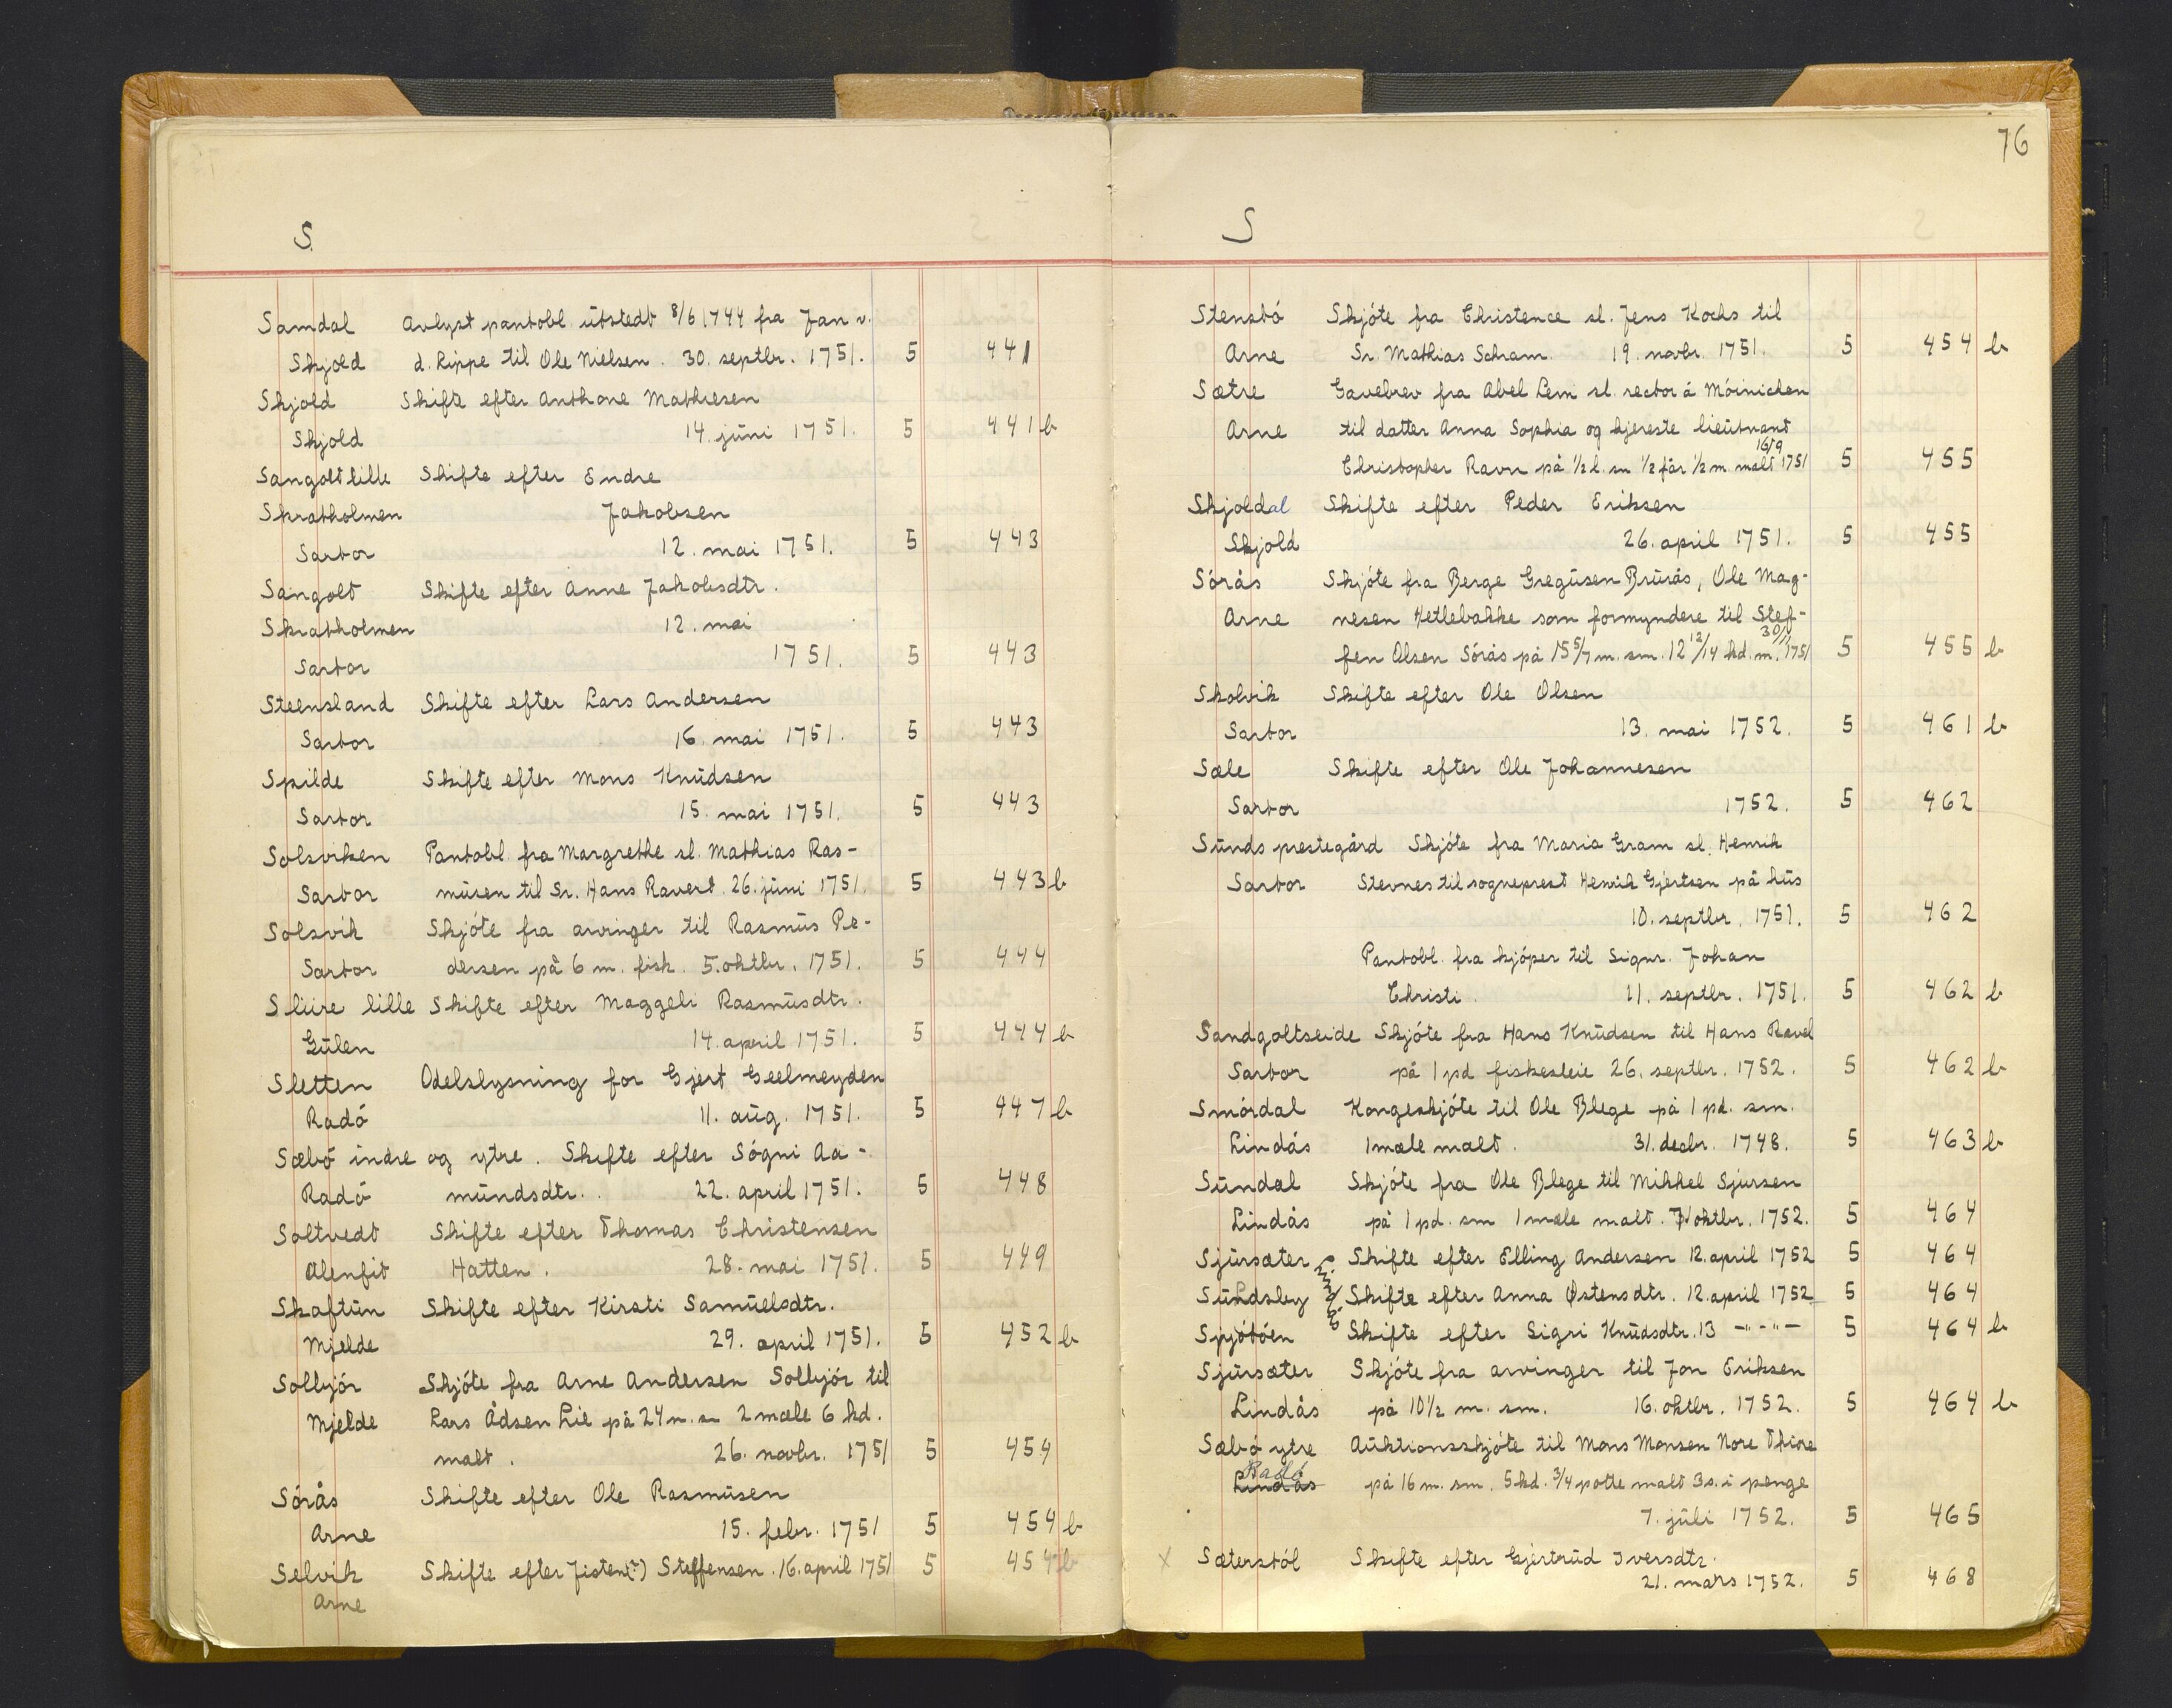 S.
Samdal Avlyst pantobl. utstedt 8/6 1744 fra Jan v.
Skjold d. Lippe til Ole Nielsen. 30. septbr. 1751. 5 441
Skjold Skifte efter Anthone Mathiesen
Skjold 14. juni 1751. 5 441 b
Sangolt lille Skifte efter Endre
Skratholmen Jakobsen
Sartor 12. mai 1751. 5 443
Sangolt Skifte efter Anne Jakobsdtr.
Skratholmen 12. mai
Sartor 1751. 5 443
Steensland Skifte efter Lars Andersen
Sartor 16. mai 1751. 5 443
Spilde Skifte efter Mons Knudsen
Sartor 15. mai 1751. 5 443
Solsviken Pantobl. fra Margrethe sl. Mathias Ras-
Sartor musen til Sr. Hans Ravert. 26. juni 1751. 5 443 b
Solsvik Skjóte fra arvinger til Rasmus Pe-
Sartor dersen på 6 m. fisk. 5. oktbr. 1751. 5 444
Sliire lille Skifte efter Maggeli Rasmusdtr.
Gulen 14. april 1751. 5 444 b
Sletten Odelslysning for Gjert Geelmeyden
Radó 11. aug. 1751. 5 447 b
Sæbó indre og ytre. Skifte efter Sógni Aa-
Radó mundsdtr. 22. april 1751. 5 448
Soltvedt Skifte efter Thomas Christensen
Alenfit Hatten. 28. mai 1751. 5 449
Skaftun Skifte efter Kirsti Samuelsdtr.
Mjelde 29. april 1751. 5 452 b
Solbjór Skjóte fra Arne Andersen Solbjór til
Mjelde Lars Ådsen Lie på 24 m. sm 2 mæle 6 kd.
malt. 26. novbr. 1751 5 454
Sórås Skifte efter Ole Rasmusen
Arne 15. febr. 1751 5 454 b
Selvik Skifte efter Jisten(?) Steffensen. 16. april 1751 5 454 b
Arne
76
S
Stensbó Skjóte fra Christence sl. Jens Kochs til
Arne Sr. Mathias Schram. 19. novbr. 1751. 5 454 b
Sætre Gavebrev fra Abel Lem sl. rector á Móinichen
Arne til datter Anna Sophia og kjereste lieutnant
Christopher Ravn på ½ l. sm ½ får ½ m. malt 16/9 1751 5 455
Skjoldal Skifte efter Peder Eriksen
Skjold 26. april 1751. 5 455
Sórås Skjóte fra Berge Gregusen Brurås, Ole Mag-
Arne nesen Hetlebakke som formyndere til Stef-
fen Olsen Sórås på 15 5/7 m. sm. 12 12/14 kd. m. 30/11 1751 5 455 b
Skolvik Skifte efter Ole Olsen
Sartor 13. mai 1752. 5 461 b
Sæle Skifte efter Ole Johannesen
Sartor 1752. 5 462
Sunds prestegård Skjóte fra Maria Gram sl. Henrik
Sartor Stevnes til sogneprest Henrik Gjertsen på hus
10. septbr. 1751. 5 462
Pantobl. fra kjóper til Signr. Johan
Christi. 11. septbr. 1751. 5 462 b
Sandgoltseide Skjóte fra Hans Knudsen til Hans Ravel
Sartor på 1 pd fiskesleie 26. septbr. 1752. 5 462 b
Smórdal Kongeskjóte til Ole Blege på 1 pd. sm.
Lindås 1 mæle malt. 31. decbr. 1748. 5 463 b
Sundal Skjóte fra Ole Blege til Mikkel Sjursen
Lindås på 1 pd. sm 1 mæle malt. oktbr. 1752. 5 464
Sjursæter Skifte efter Elling Andersen 12. april 1752 5 464
Sundsley Skifte efter Anna Østensdtr. 12. april 1752 5 464
Spjótóen Skifte efter Sigri Knudsdtr. 13 -"-"- 5 464 b
Sjursæter Skjóte fra arvinger til Jon Eriksen
Lindås på 10½ m. sm. 16. oktbr. 1752. 5 464 b
Sæbó ytre Auktionsskjóte til Mons Monsen Nore
Radó
Lindås på 16 m. sm. 5 kd. 3/4 potte malt 3 s. i penge
7. juli 1752. 5 465
x Sæterstól Skifte efter Gjertrud Iversdtr.
21. mars 1752. 5 468